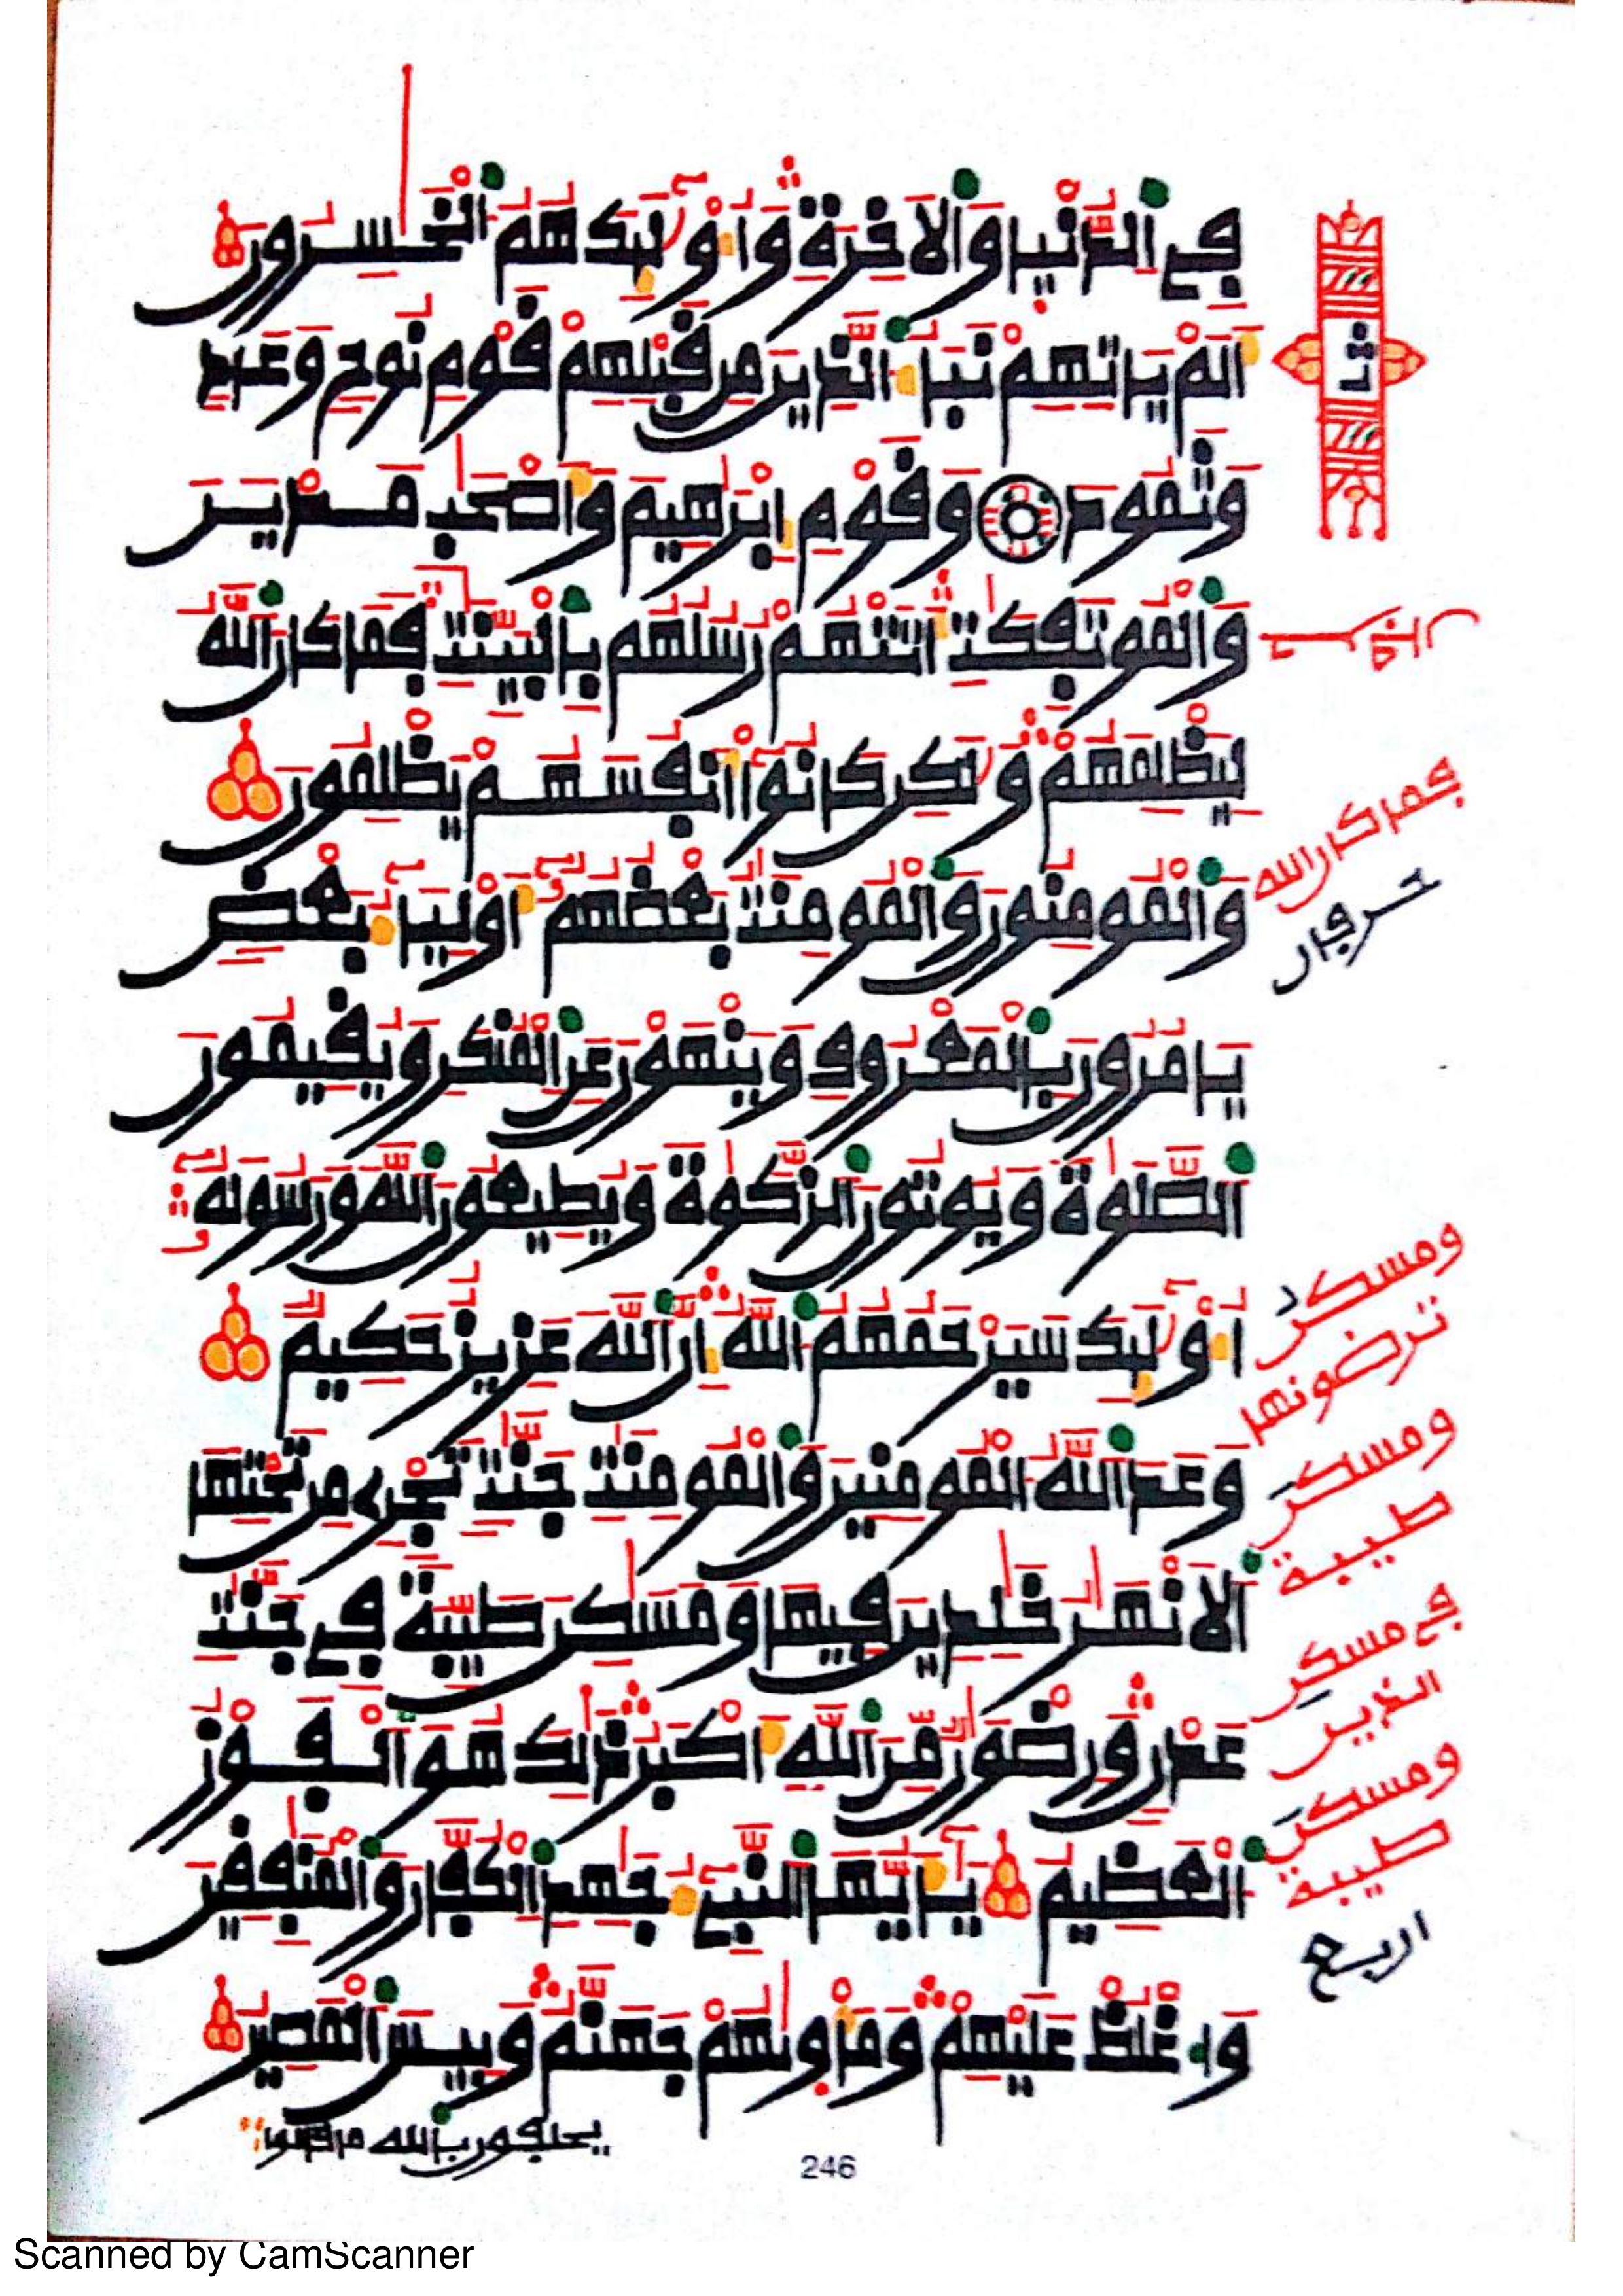 في الدنيا والاخرة واوليك هم الخسرون
الم ياتهم نبا الذين من قبلهم قوم نوح وعاد
وثمود وقوم ابرهيم واصحب مدين
والموتفكت اتتهم رسلهم بالبينت فما كان الله
ليظلمهم ولكن كانوا انفسهم يظلمون
والمومنون والمومنت بعضهم اوليا بعض
يامرون بالمعروف وينهون عن المنكر ويقيمون
الصلوة ويوتون الزكوة ويطيعون الله ورسوله
اوليك سيرحمهم الله ان الله عزيز حكيم
وعد الله المومنين والمومنت جنت تجري من تحتها
الانهر خلدين فيها ومسكن طيبة في جنت
عدن ورضون من الله اكبر ذلك هو الفوز
العظيم يايها النبي جهد الكفار والمنفقين
واغلظ عليهم وماويهم جهنم وبيس المصير
يحلفون بالله ما قالوا
ثا
فمن كان الله
حرفان
ومسكن
ترضونها
ومسكن
طيبة
في مسكن
الذين
ومسكن
طيبة
اربع
246
Scanned by CamScanner